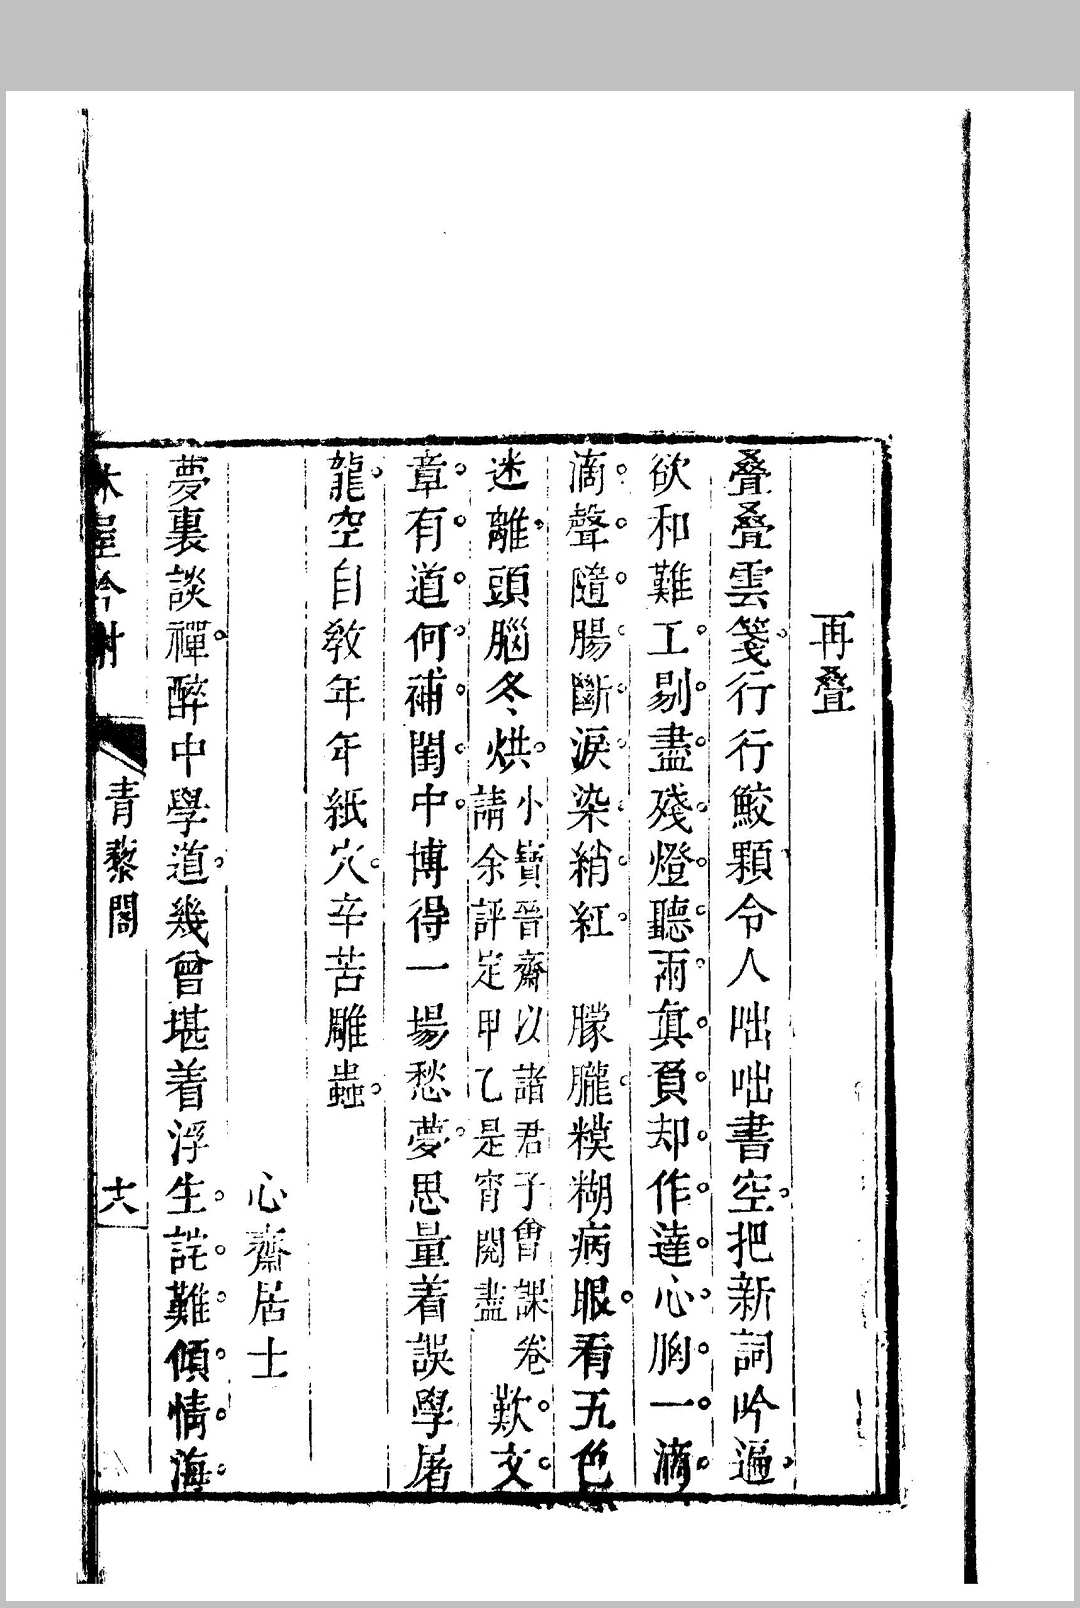 再疊
疊疊雲箋行行鮫顆令人咄咄書空把新詞吟遍
欲和難工剔盡殘燈聽雨真負却作達心胸一滴
滴聲隨腸斷淚染綃紅　朦朧糢糊病眼看五色
迷離頭腦冬烘小寶晉齋以諸君子會課卷請余評定甲乙是宵閱盡歎文
章有道何補閨中博得一場愁夢思量着誤學屠
龍空自敎年年紙穴辛苦雕蟲
心齋居士
夢裏談禪醉中學道幾曾堪着浮生詫難傾情海
林屋吟榭
青藜閣
十六